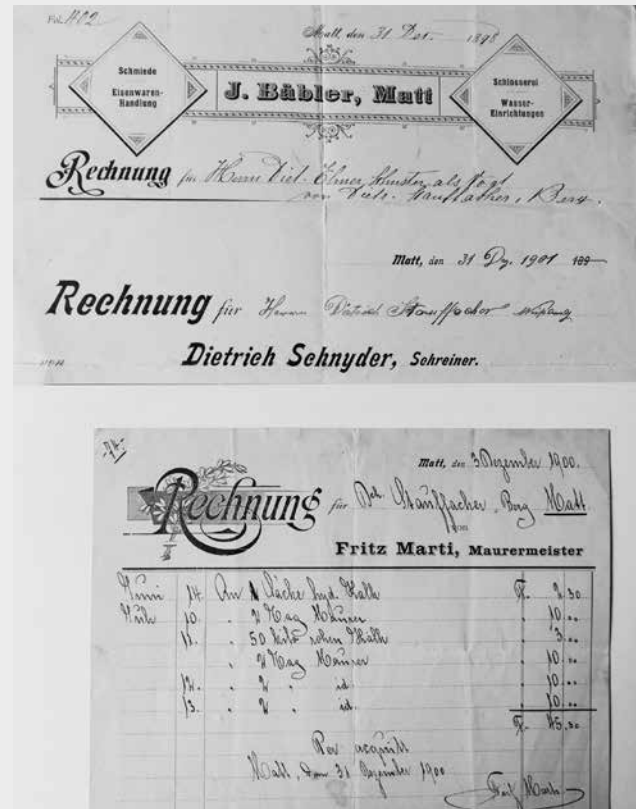 Fol. 402
Matt, den 31 Dez. 1898
Schmiede
Eisenwaren-
Handlung
J. Bäbler, Matt
Schlosserei
Wasser-
Einrichtungen
Rechnung für Herrn Diet. Elmer, Schuster als Vogt
von Dietr. Stauffacher, Berg.
Matt, den 31 Dez. 1901 189
Rechnung für Herrn Dietrich Stauffacher
Dietrich Schnyder, Schreiner.
Matt, den 3 Dezember 1900.
Rechnung für Dch. Stauffacher, Berg Matt
von
Fritz Marti, Maurermeister
Juni 14. An 1 Säcke hyd. Kalk Fr. 2.50
10. " 2 Tag Maurer " 10.
11. " 50 kilo rohen Kalk " 3.
" 2 Tag Maurer " 10.
12. " 2 " id. " 10.
13. " 2 " id. " 10.
Fr. 45.50
Per acquit
Matt, den 31 Dezember 1900
Fritz Marti